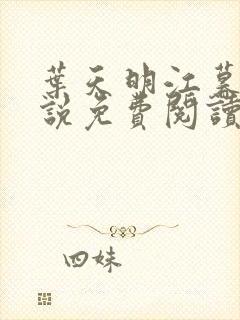 葉天明江幕
說免費閱讀
四妹